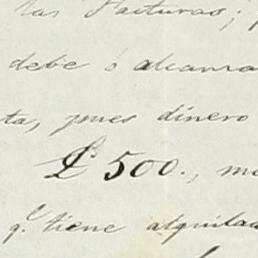 las facturas;
debe ó alcanza
ta, pues dinero
£ 500., m
q.e tiene alquilad